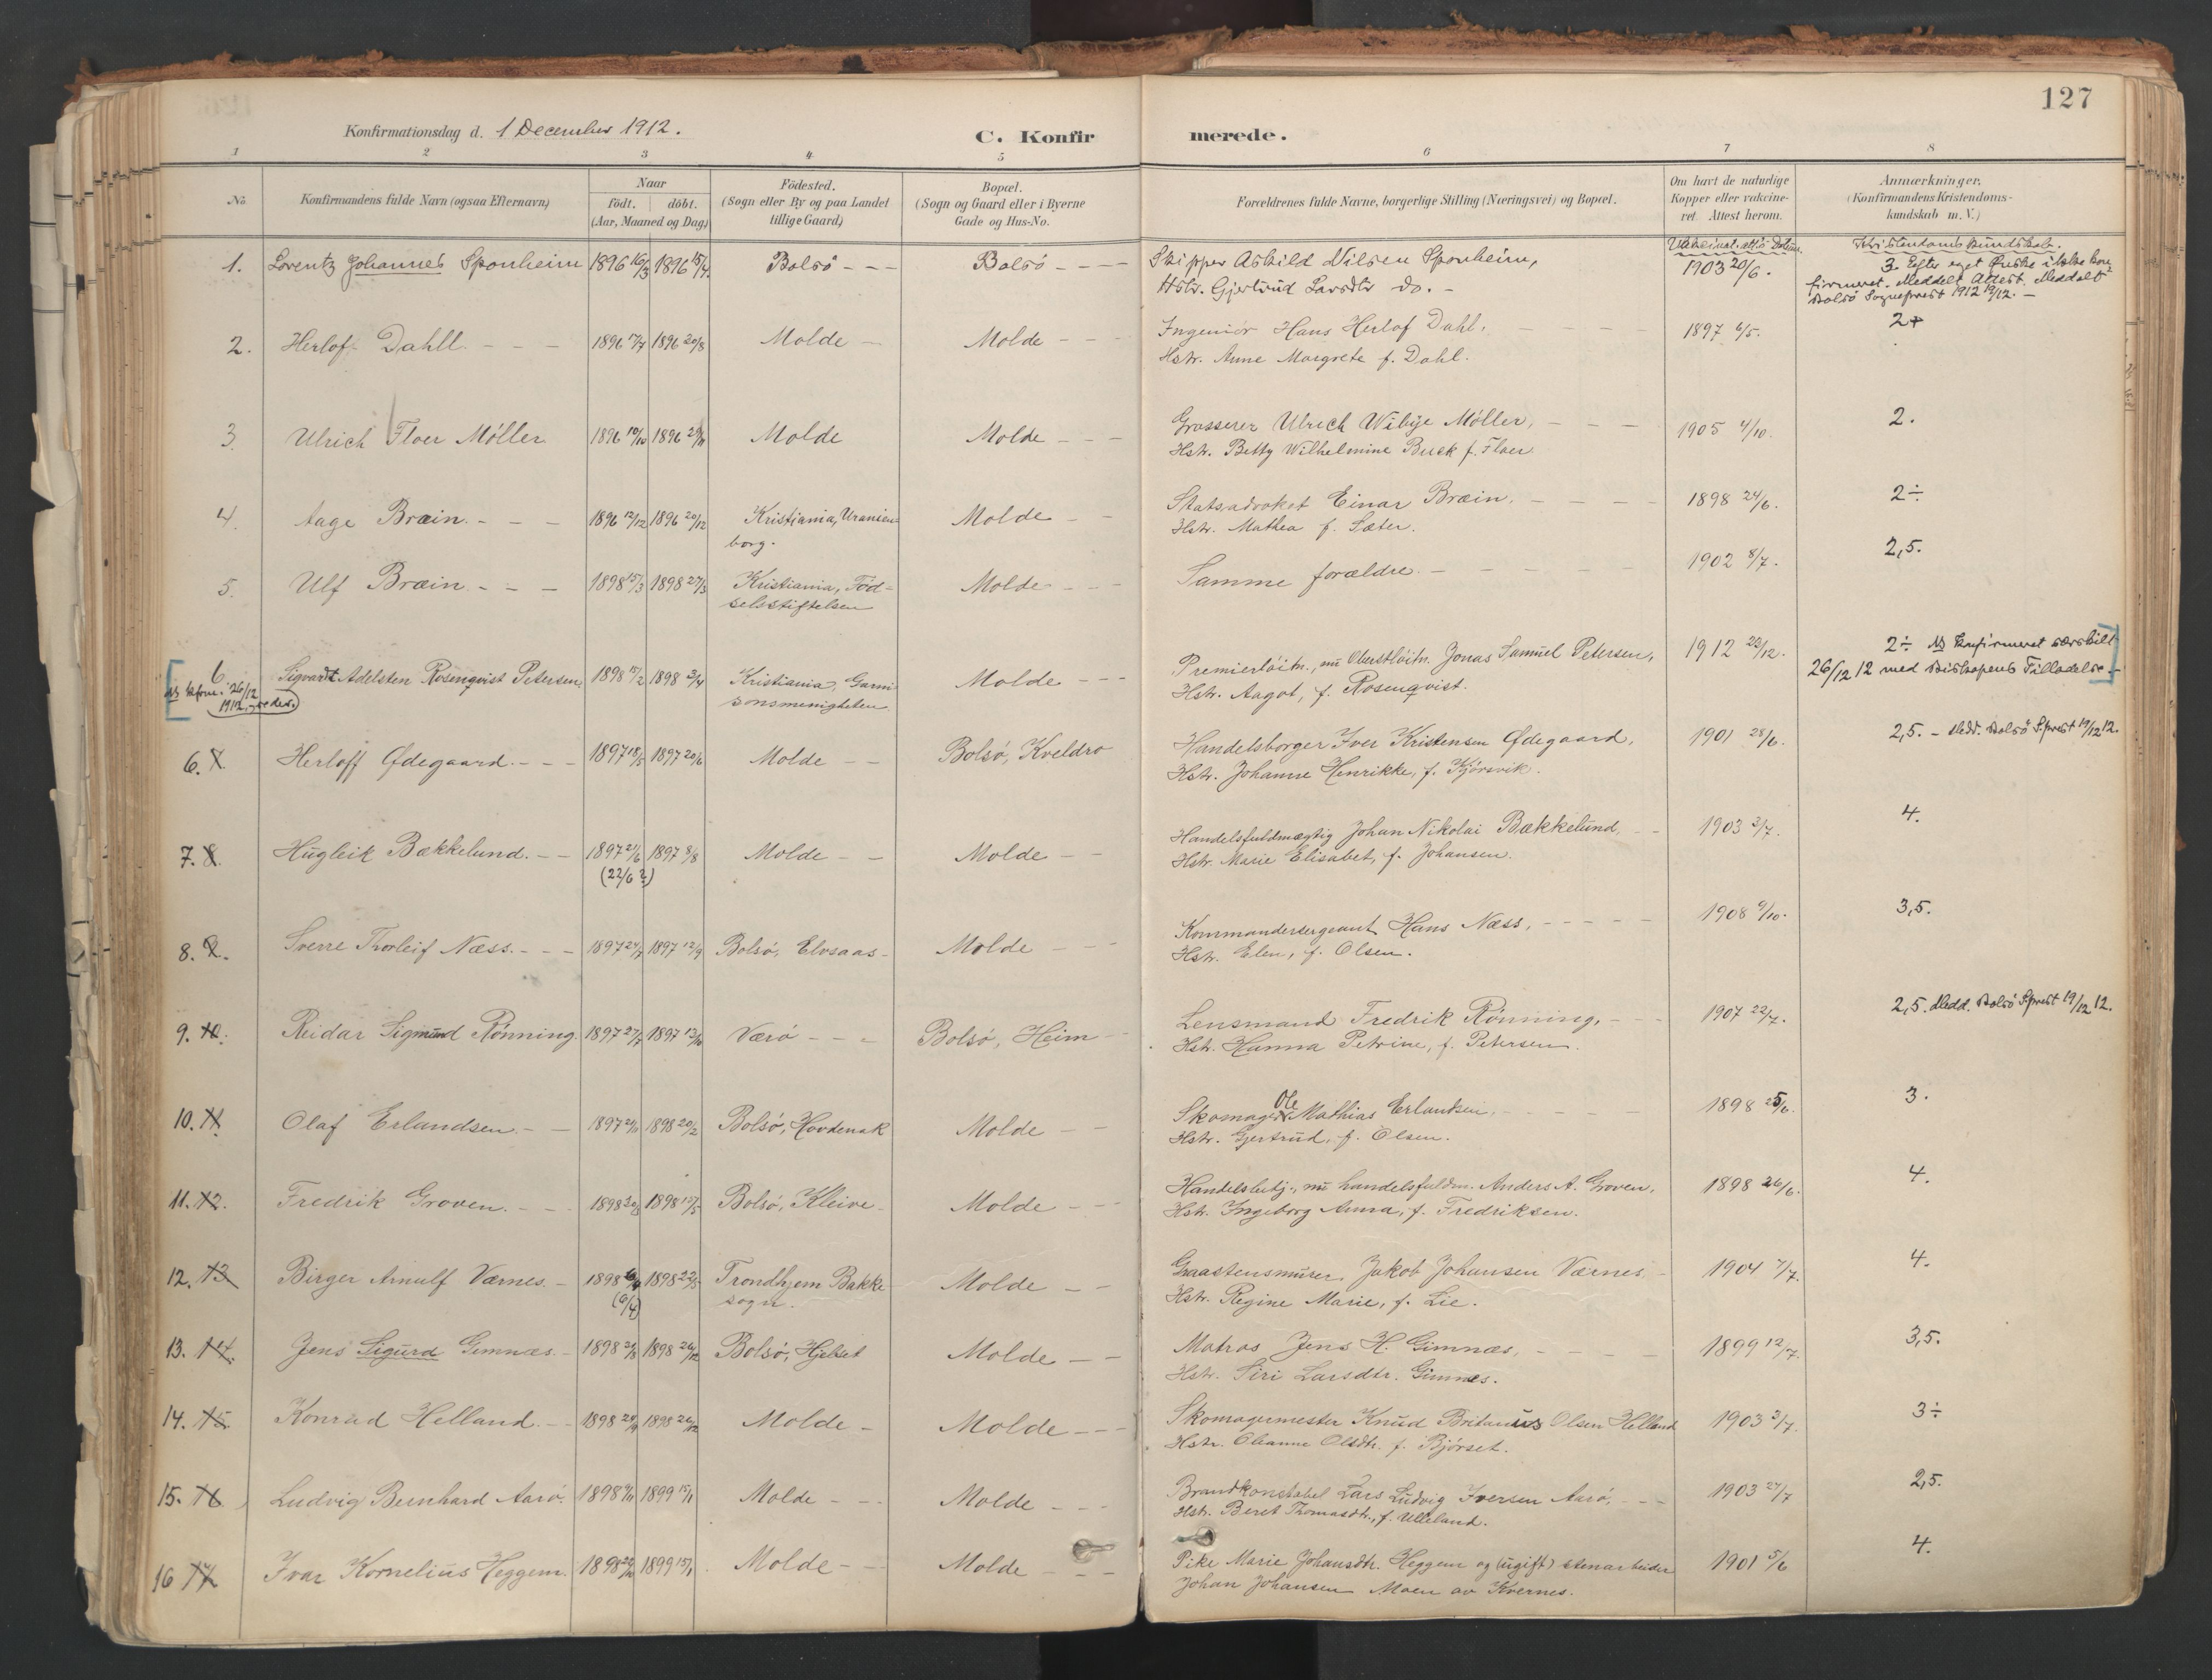 127
Konfirmationsdag d. 1 December 1912.
C. Konfirmerede.
1 2 3 4 5 6 7 8
No.
Konfirmandens fulde Navn (ogsaa Efternavn)
Naar
födt. döbt.
(Aar, Maaned og Dag)
Födested.
(Sogn eller By og paa Landet
tillige Gaard)
Bopæl.
(Sogn og Gaard eller i Byerne
Gade og Hus-No.
Forældrenes fulde Navne, borgerlige Stilling (Næringsvei) og Bopæl.
Om havt de naturlige
Kopper eller vakcine-
ret. Attest herom.
Anmærkninger,
(Konfirmandens Kristendoms-
kundskab m. V.)
1. Lorentz Johannes Sponheim 1896 16/3 1896 15/4 Bolsö - - - Bolsö - - - -
Skipper Askild Nilsen Sponheim,
Hstr. Gjertrud Larsdtr do. -
1903 20/6.
Kristendomskundskab.
3. Efter eget Ønske ikke kon-
firmeret. Meddelt Attest. Meddelt
Bolsö Sogneprest 1912 19/12. -
2. Herlof Dahll - - - 1896 17/7 1896 20/8 Molde - Molde - - -
Ingeniör Hans Herlof Dahl,
Hstr. Anne Margrete f. Dahl.
1897 6/5.
2+
3. Ulrich Floer Möller 1896 10/10 1896 29/11 Molde Molde - - -
Grosserer Ulrich Wibye Möller, - - -
Hstr. Betty Wilhelmine Buck f. Floer
1905 4/10.
2.
4. Aage Bræin. - - - 1896 12/12 1896 20/12 Kristiania, Uranien-
borg.
Molde - -
Statsadvoket Einar Bræin. - - - -
Hstr. Mathea f. Sæter.
1898 24/6.
2÷
5. Ulf Bræin - - - 1898 15/3 1898 27/3 Kristiania, Föd-
selsstiftelsen
Molde - - -
Samme forældre - - - - -
1902 8/7.
2,5.
[6. Sigvardt Adelsten Rosenqvist Petersen. 1898 15/2 1898 3/4 Kristiania, Garni-
sonsmenigheten
Molde - - -
NB kfrm. 26/12
1912, se der.
Premierlöitn., nu Oberstlöitn. Jonas Samuel Petersen,
Hstr. Aagot, f. Rosenqvist.
1912 23/12.
2÷ NB konfirmeret særskilt
26/12 12 med Biskopens Tilladelse -]
6. 7. Herloff Ødegaard. - - - 1897 18/5 1897 20/6 Molde - - Bolsö, Kveldro
Handelsborger Iver Kristensen Ødegaard,
Hstr. Johanne Henrikke, f. Kjörsvik.
1901 28/6.
2,5. - Medd. Bolsö Sprest 19/12 12.
7. 8. Hugleik Bækkelund. - - 1897 21/6 1897 8/8 Molde - - Molde - -
(22/6 ?)
Handelsfuldmægtig Johan Nikolai Bækkelund, - -
Hstr. Marie Elisabet, f. Johansen.
1903 3/7.
4.
8. 9. Sverre Thorleif Næss. - - - 1897 24/7 1897 12/9 Bolsö, Elvsaas - Molde - - -
Kommandersergeant Hans Næss, - - - - -
Hstr. Elen, f. Olsen.
1908 9/10.
3,5.
9. 10. Reidar Sigmund Rönning. 1897 27/7 1897 13/10 Værö - - - Bolsö, Heim -
Lensmand Fredrik Rönning, - - -
Hstr. Hanna Petrine, f. Petersen.
1907 22/7.
2,5. Medd. Bolsö Sprest 19/12 12.
10. 11. Olaf Erlandsen - - 1897 21/11 1898 20/2 Bolsö, Hovdenak Molde - -
Skomager Ole Mathias Erlandsen, - - - - -
Hstr. Gjertrud, f. Olsen.
1898 25/6.
3.
11. 12. Fredrik Groven. - - 1898 30/3 1898 19/5 Bolsö, Kleive - Molde - - -
Handelsbetj., nu handelsfuldm. Anders A. Groven,
Hstr. Ingeborg Anna, f. Fredriksen.
1898 26/6.
4.
12. 13. Birger Arnulf Værnes. - 1898 6/4 1898 22/5 Trondhjem Bakke
sogn.
Molde - -
(6/4)
Graastensmurer Jakob Johansen Værnes -
Hstr. Regine Marie, f. Lie.
1904 7/7.
4.
13. 14. Jens Sigurd Gimnæs. - 1898 21/8 1898 26/12 Bolsö, Hjelset Molde - -
Matros Jens H. Gimnæs, - - - -
Hstr. Siri Larsdtr. Gimnæs.
1899 12/7.
3,5.
14. 15. Konrad Helland. - - 1898 29/9 1898 26/12 Molde - Molde - - -
Skomagermester Knud Britanius Olsen Helland
Hstr. Oleanne Olsdtr. f. Bjørset.
1903 3/7.
3÷
15. 16. Ludvig Bernhard Aarö. 1898 9/11 1899 15/1 Molde - - Molde - - -
Brandkonstabel Lars Ludvig Iversen Aarö, - - -
Hstr. Beret Thomasdtr., f. Ulleland.
1903 27/7
2,5.
16 17 Ivar Kornelius Heggem. 1898 29/10 1899 15/1 Molde - - Molde - - -
Pike Marie Johansdtr. Heggem og (ugift) stenarbeider
Johan Johansen Moen av Kvernes.
1901 5/6
4.